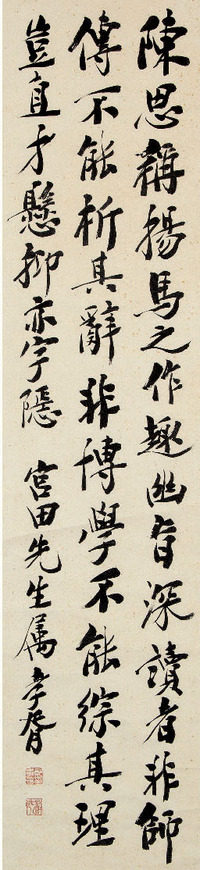 陳思稱揚馬之作趣幽旨深讀者非師
傳不能析其辭非博學不能綜其理
豈直才懸抑亦字隱 宮田先生属 孝胥